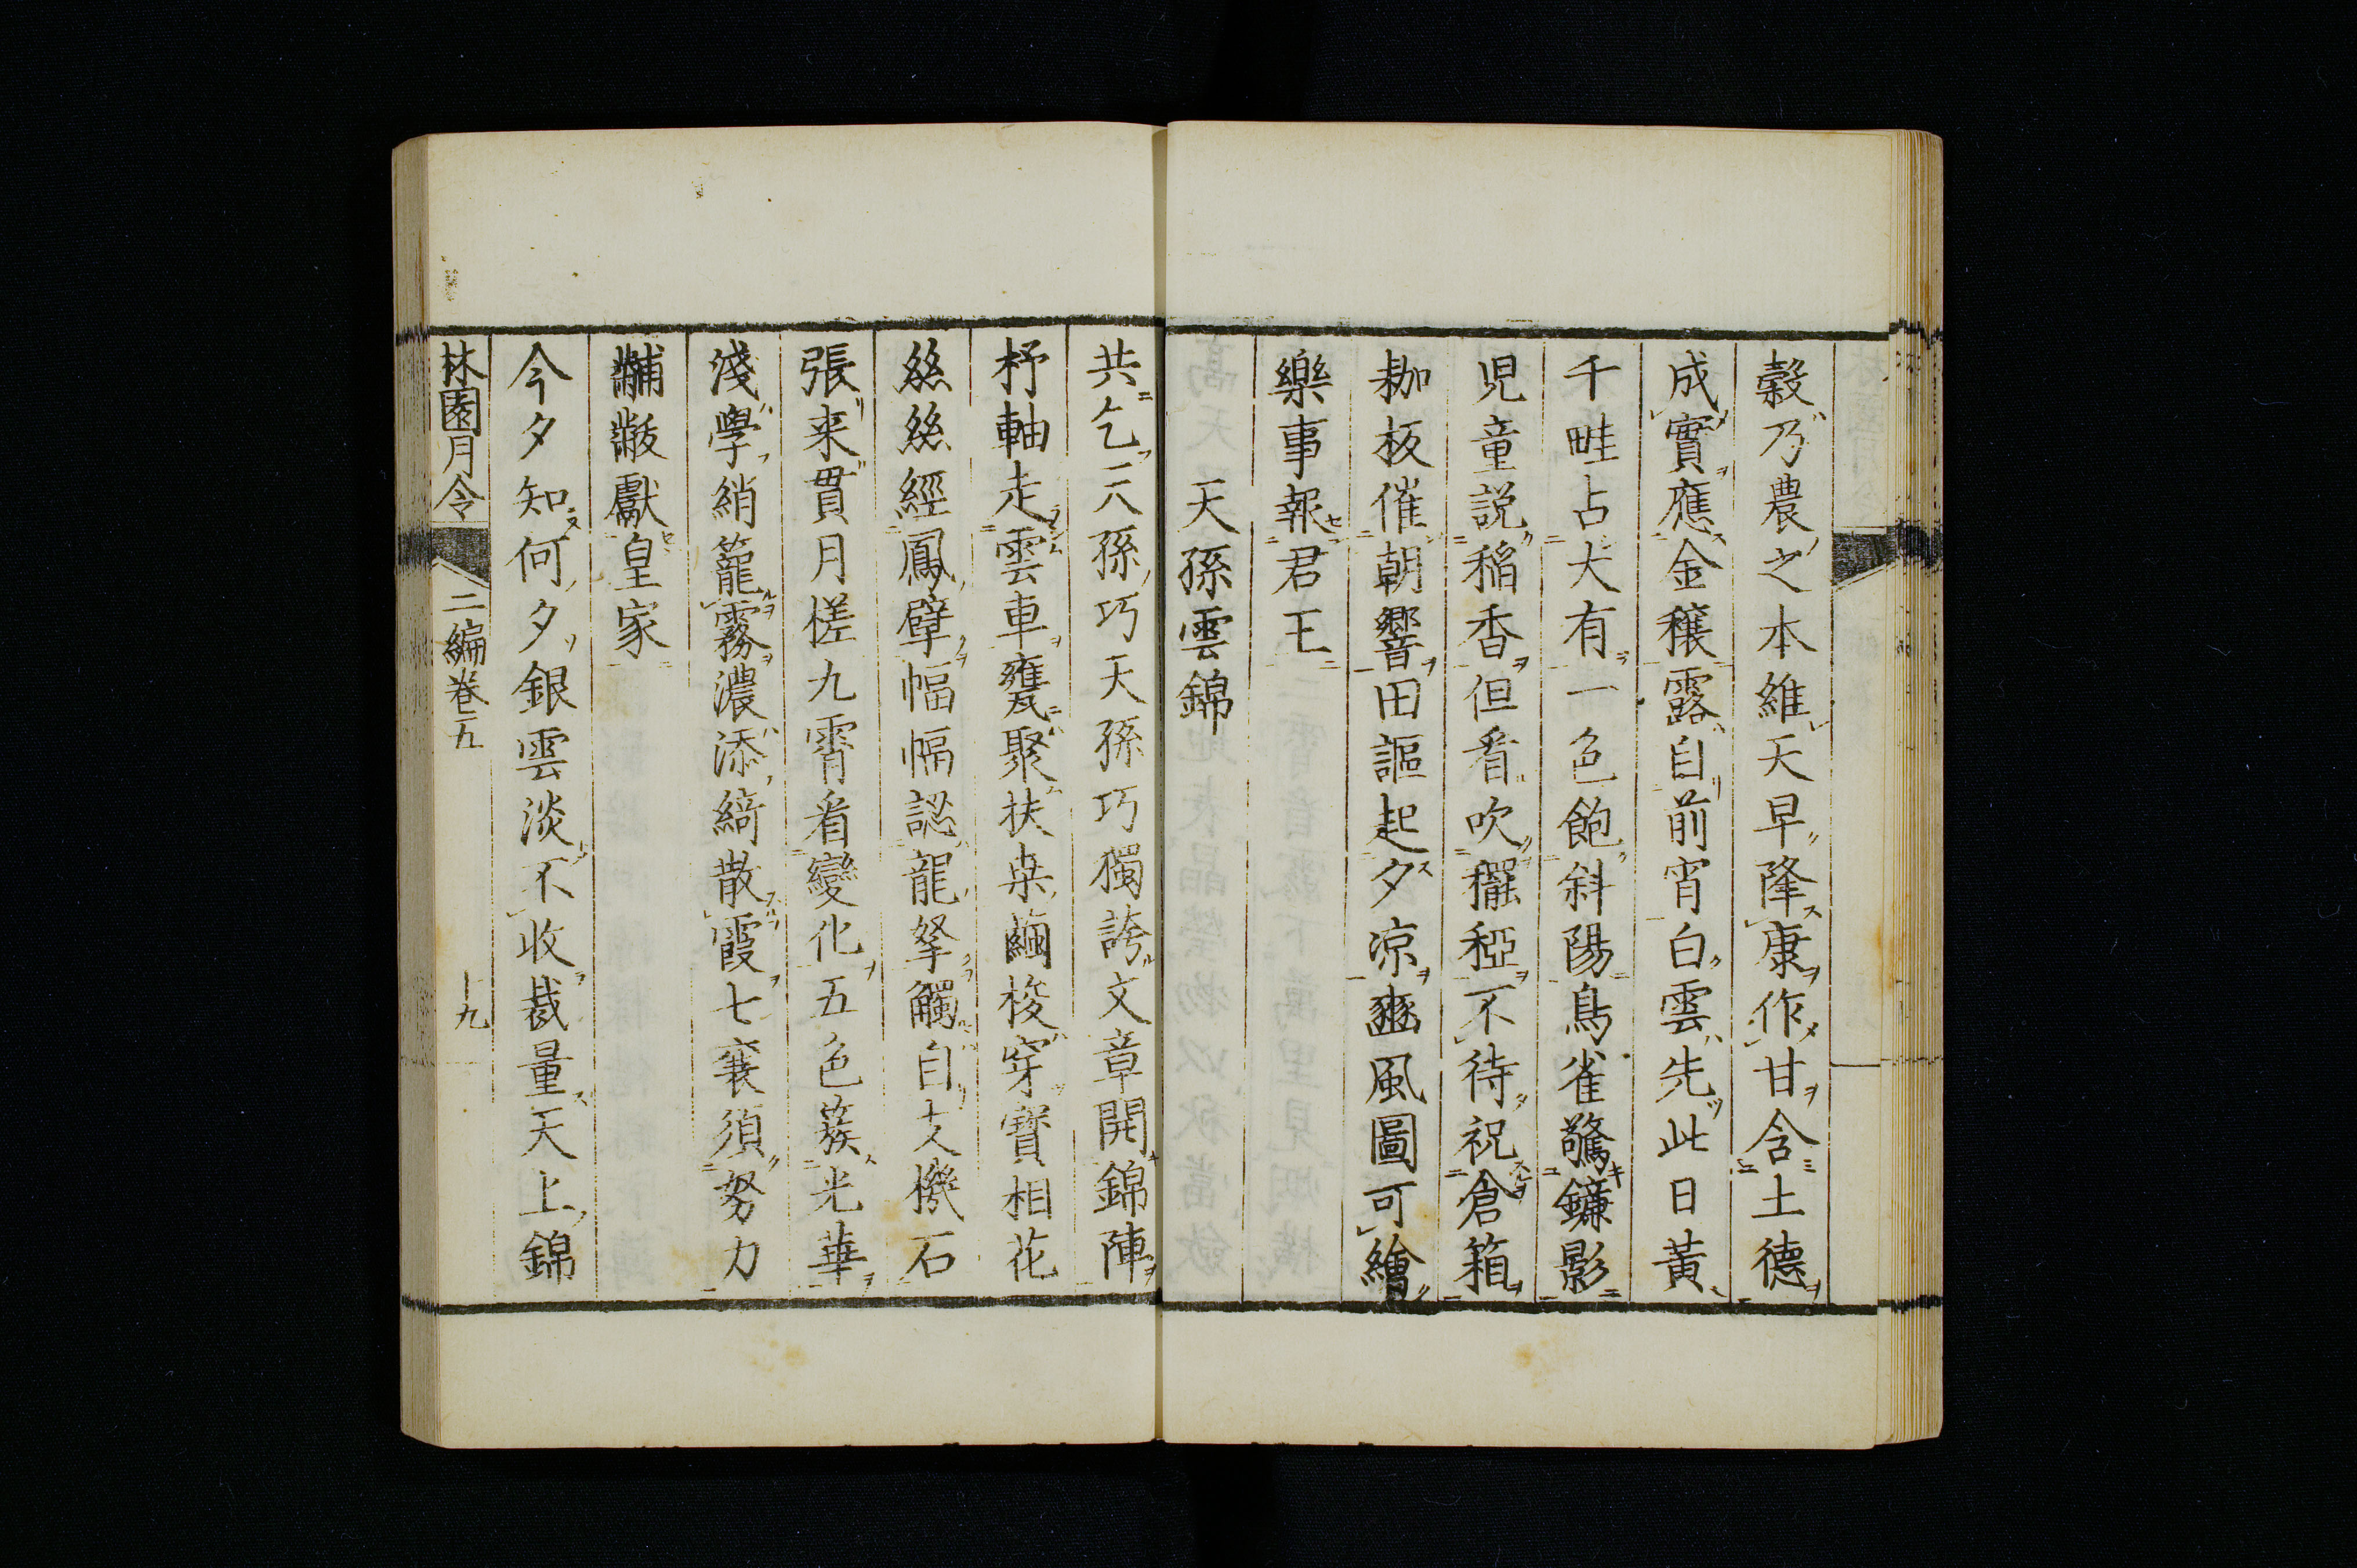 穀乃農之本維天早降康作甘含土德
成實應金穰露自前宵白雲先此日黃
千畦占大有一色飽斜陽鳥雀驚鐮影
児童説稲香但看吹䆉稏不待祝倉箱
耞板催朝響田謳起夕凉豳風圖可繪
樂事報君王
天孫雲錦
共乞天孫巧天孫巧獨誇文章開錦陣
杼軸走雲車甕聚扶桒繭梭穿寶相花
絲絲經鳳擘幅幅認龍拏觸自支機石
張来貫月槎九霄看變化五色簇光華
淺學綃籠霧濃添綺散霞七襄須努力
黼黻獻皇家
今夕知何夕銀雲淡不收裁量天上錦
林園月令 二編卷五 十九